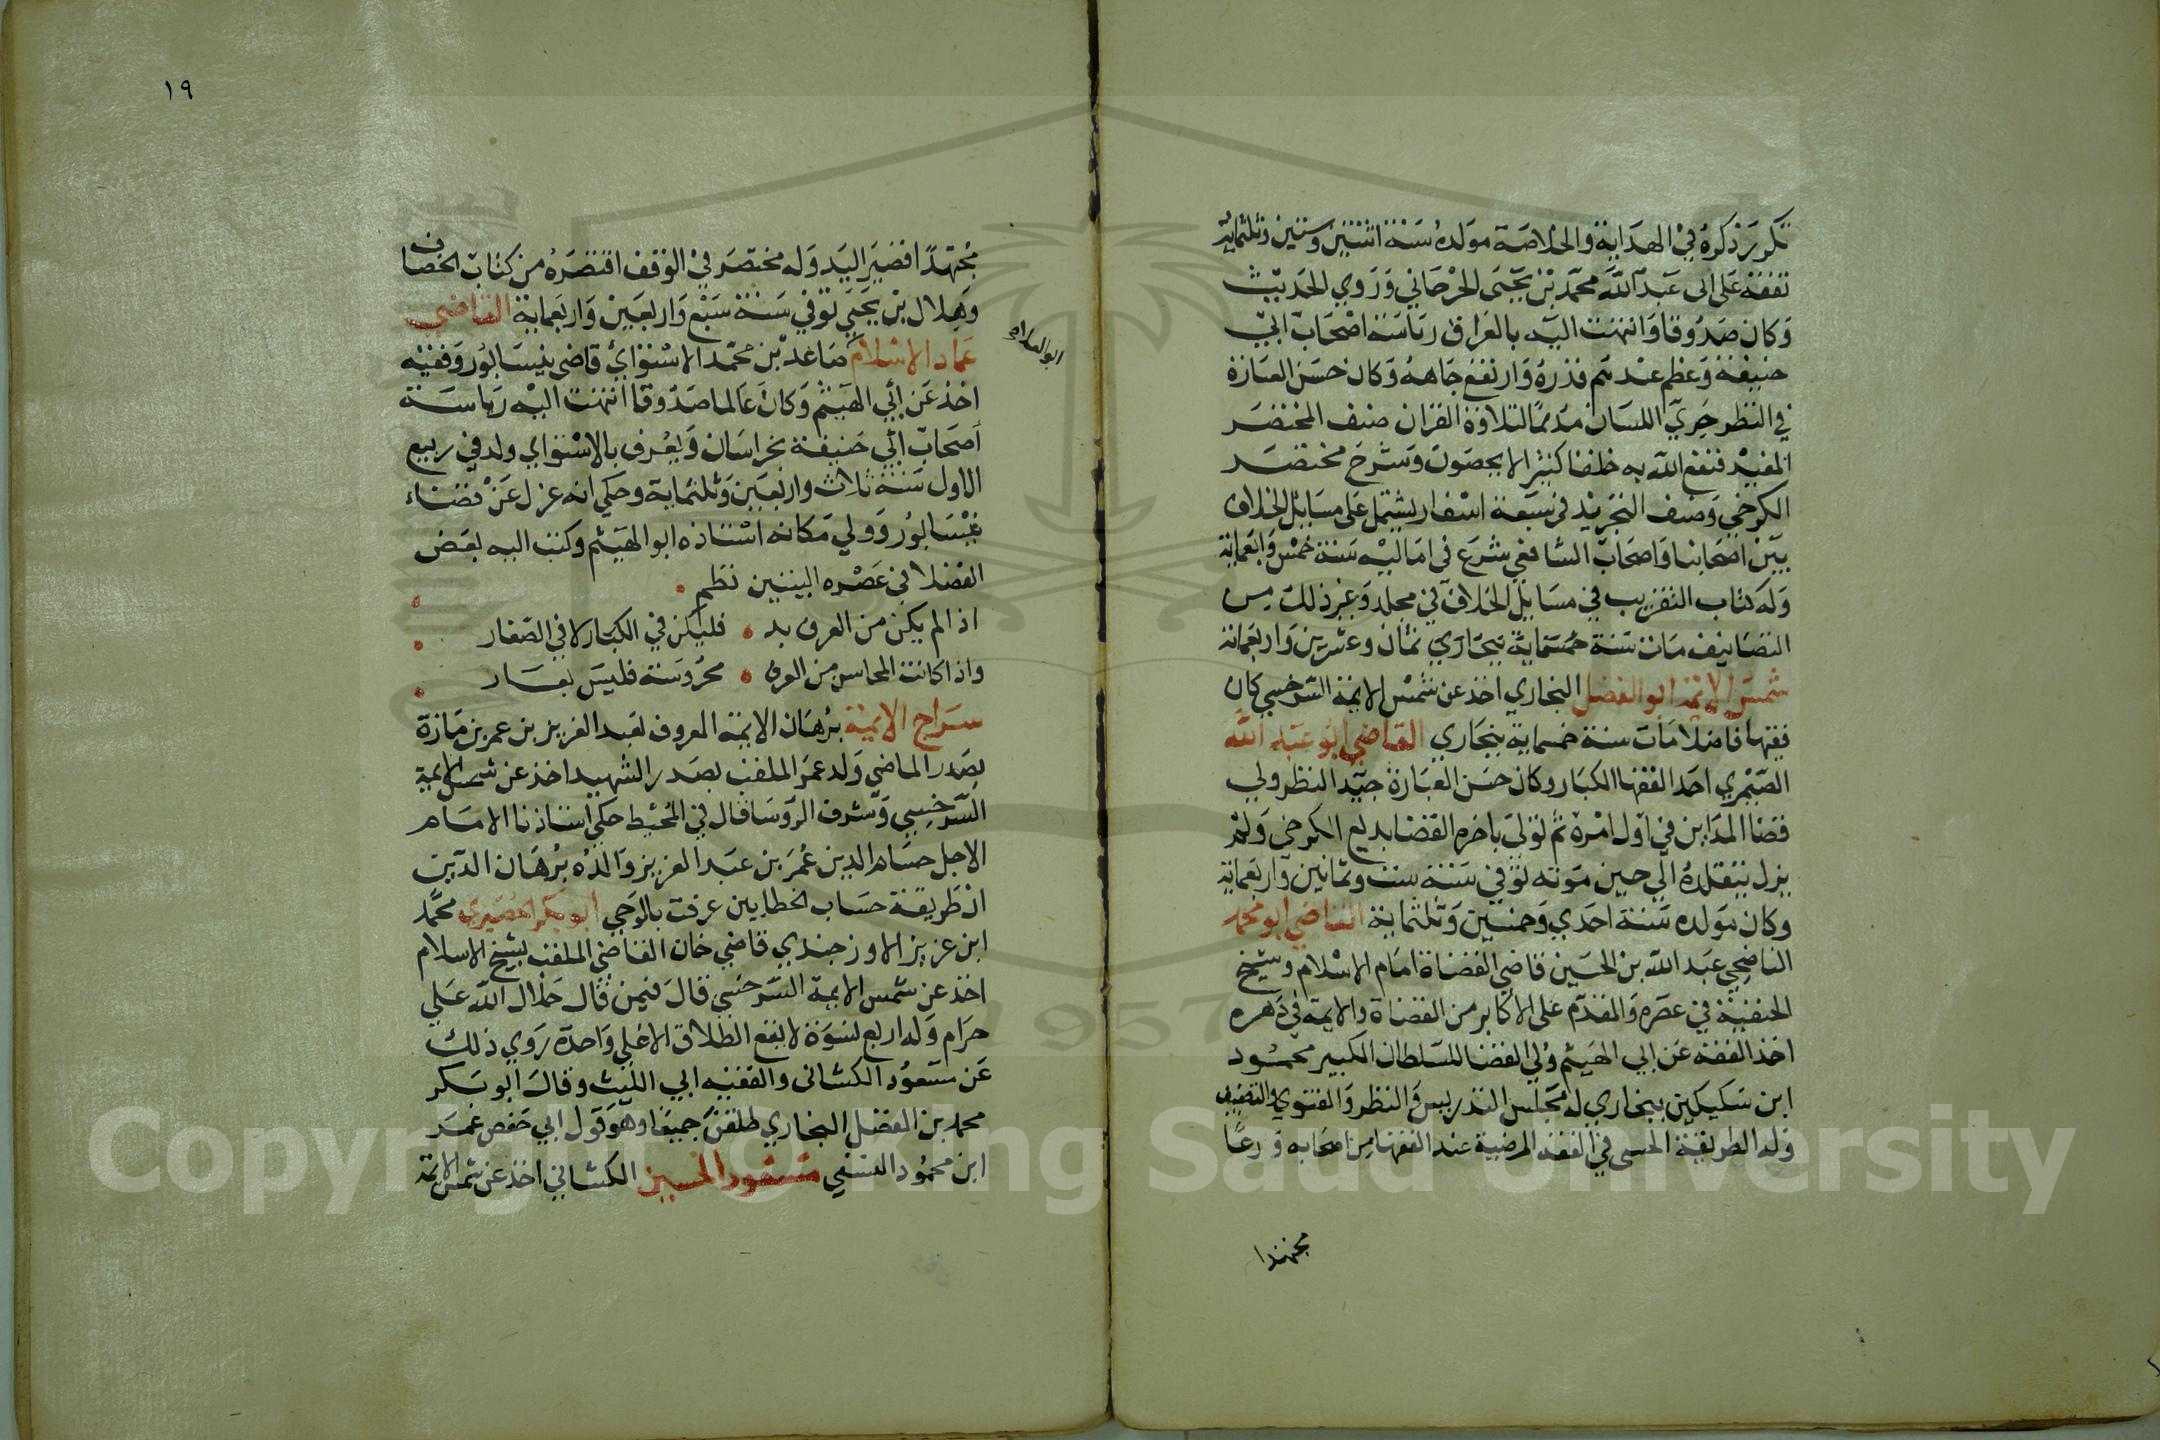 تكرر ذكره في الهداية والخلاصة مولده سنة اثنتين وستين وثلثماية
تفقه على ابى عبد الله محمد بن يحيى الجرجاني وروي الحديث
وكان صدوقا وانتهت اليه بالعراق رياسة اصحاب ابي
حنيفة وعظم عندهم قدره وارتفع جاهه وكان حسن العبارة
في النظر جري اللسان مديما لتلاوة القران صنف المختصر
المفيد فنفع الله به خلقا كثيرا لا يحصون وشرح مختصر
الكرخي وصنف التجريد في سبعة اسفار يشتمل على مسايل الخلاف
بين اصحابنا واصحاب الشافعي شرع في اماليه سنة خمس واربعماية
وله كتاب التقريب في مسايل الخلاف في مجلد وغير ذلك من
التصانيف مات سنة خمسماية ببخاري ثمان وعشرين واربعماية
شمس الايمة ابو الفضل البخاري اخذ عن شمس الايمة السرخسي كان
فقيها فاضلا مات سنة خمسماية ببخاري القاضي ابو عبد الله
الصيمري احد الفقها الكبار وكان حسن العبارة جيد النظر ولي
قضا المداين في اول امره ثم تولى باخره القضا بربع الكرخ ولم
يزل يتقلده الي حين موته توفي سنة ست وثمانين واربعماية
وكان مولده سنة احدي وخمسين وثلثماية القاضي ابو محمد
الناصحي عبد الله بن الحسين قاضي القضاة امام الاسلام وشيخ
الحنفية في عصره والمقدم على الاكابر من القضاة والايمة في دهره
اخذ الفقه عن ابي الهيثم ولي القضا للسلطان الكبير محمود
ابن سكيكين ببخاري له مجلس التدريس والنظر والفتوي والتصنيف
وله الطريقة الحسنى في الفقه المرضية عند الفقها من اصحابه ورعا
مجتهدا
١٩
مجتهدا قصير اليد وله مختصر في الوقف اختصره من كتاب الخصاف
وهلال بن يحيى توفي سنة سبع واربعين واربعماية القاضي
عماد الاسلام صاعد بن محمد الاستوائ قاضي نيسابور وفقيه
ابو العلاء
اخذ عن ابي الهيثم وكان عالما صدوقا انتهت اليه رياسة
اصحاب ابي حنيفة بخراسان ويعرف بالاستواي ولد في ربيع
الاول سنة ثلاث واربعين وثلثماية وحكي انه عزل عن قضاء
نيسابور وولي مكانه استاذه ابو الهيثم وكتب اليه بعض
الفضلا في عصره البيتين نظم
اذ الم يكن من العرف بد فليكن في الكبار لا في الصغار
واذا كانت المحاسن من العرف محروسة فليس بعار
سراج الايمة برهان الايمة المعروف لعبد العزيز بن عمر بن مازة
بصدر الماضي ولد عمر الملقب بصدر الشهيد اخذ عن شمس الايمة
السرخسي وشرف الروسا قال في المحيط حكي استاذنا الامام
الاجل حسام الدين عمر بن عبد العزيز والده برهان الدين
ان طريقة حساب الخطايين عرفت بالوحي ابو بكر الحصيري محمد
ابن عزيز الاوزجندي قاضي خان القاضي الملقب بشيخ الاسلام
اخذ عن شمس الايمة السرخسي قال فيمن قال حلال الله علي
حرام وله اربع نسوة لا يقع الطلاق الا علي واحدة روي ذلك
عن مسعود الكشاني والفقيه ابي الليث وقال ابو بكر
محمد بن الفضل البخاري طلقن جميعا وهو قول ابي حفص عمر
ابن محمود النسفي مسعود الحسين الكشاني اخذ عن شمس الايمة
Copyright © King Saud University
1957